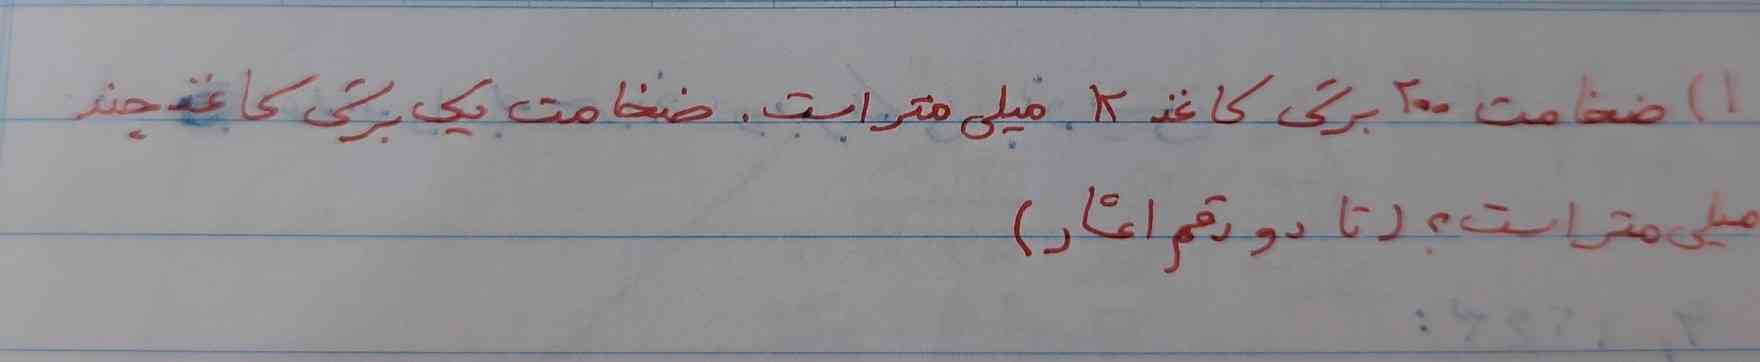 ۱) ضخامت ۲۰۰ برگ کاغذ میلی متر است. ضخامت یک برگ کاغذ چند
میلی متر است؟ (تا دو رقم اعشار)